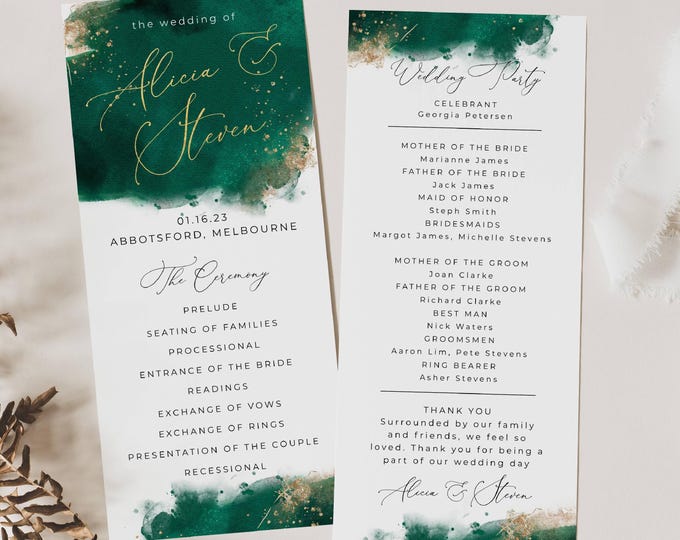 the wedding of
Alicia &
Steven
01.16.23
ABBOTSFORD, MELBOURNE
The Ceremony
PRELUDE
SEATING OF FAMILIES
PROCESSIONAL
ENTRANCE OF THE BRIDE
READINGS
EXCHANGE OF VOWS
EXCHANGE OF RINGS
PRESENTATION OF THE COUPLE
RECESSIONAL
Wedding Party
CELEBRANT
Georgia Petersen
MOTHER OF THE BRIDE
Marianne James
FATHER OF THE BRIDE
Jack James
MAID OF HONOR
Steph Smith
BRIDESMAIDS
Margot James, Michelle Stevens
MOTHER OF THE GROOM
Joan Clarke
FATHER OF THE GROOM
Richard Clarke
BEST MAN
Nick Waters
GROOMSMEN
Aaron Lim, Pete Stevens
RING BEARER
Asher Stevens
THANK YOU
Surrounded by our family
and friends, we feel so
loved. Thank you for being a
part of our wedding day
Alicia & Steven